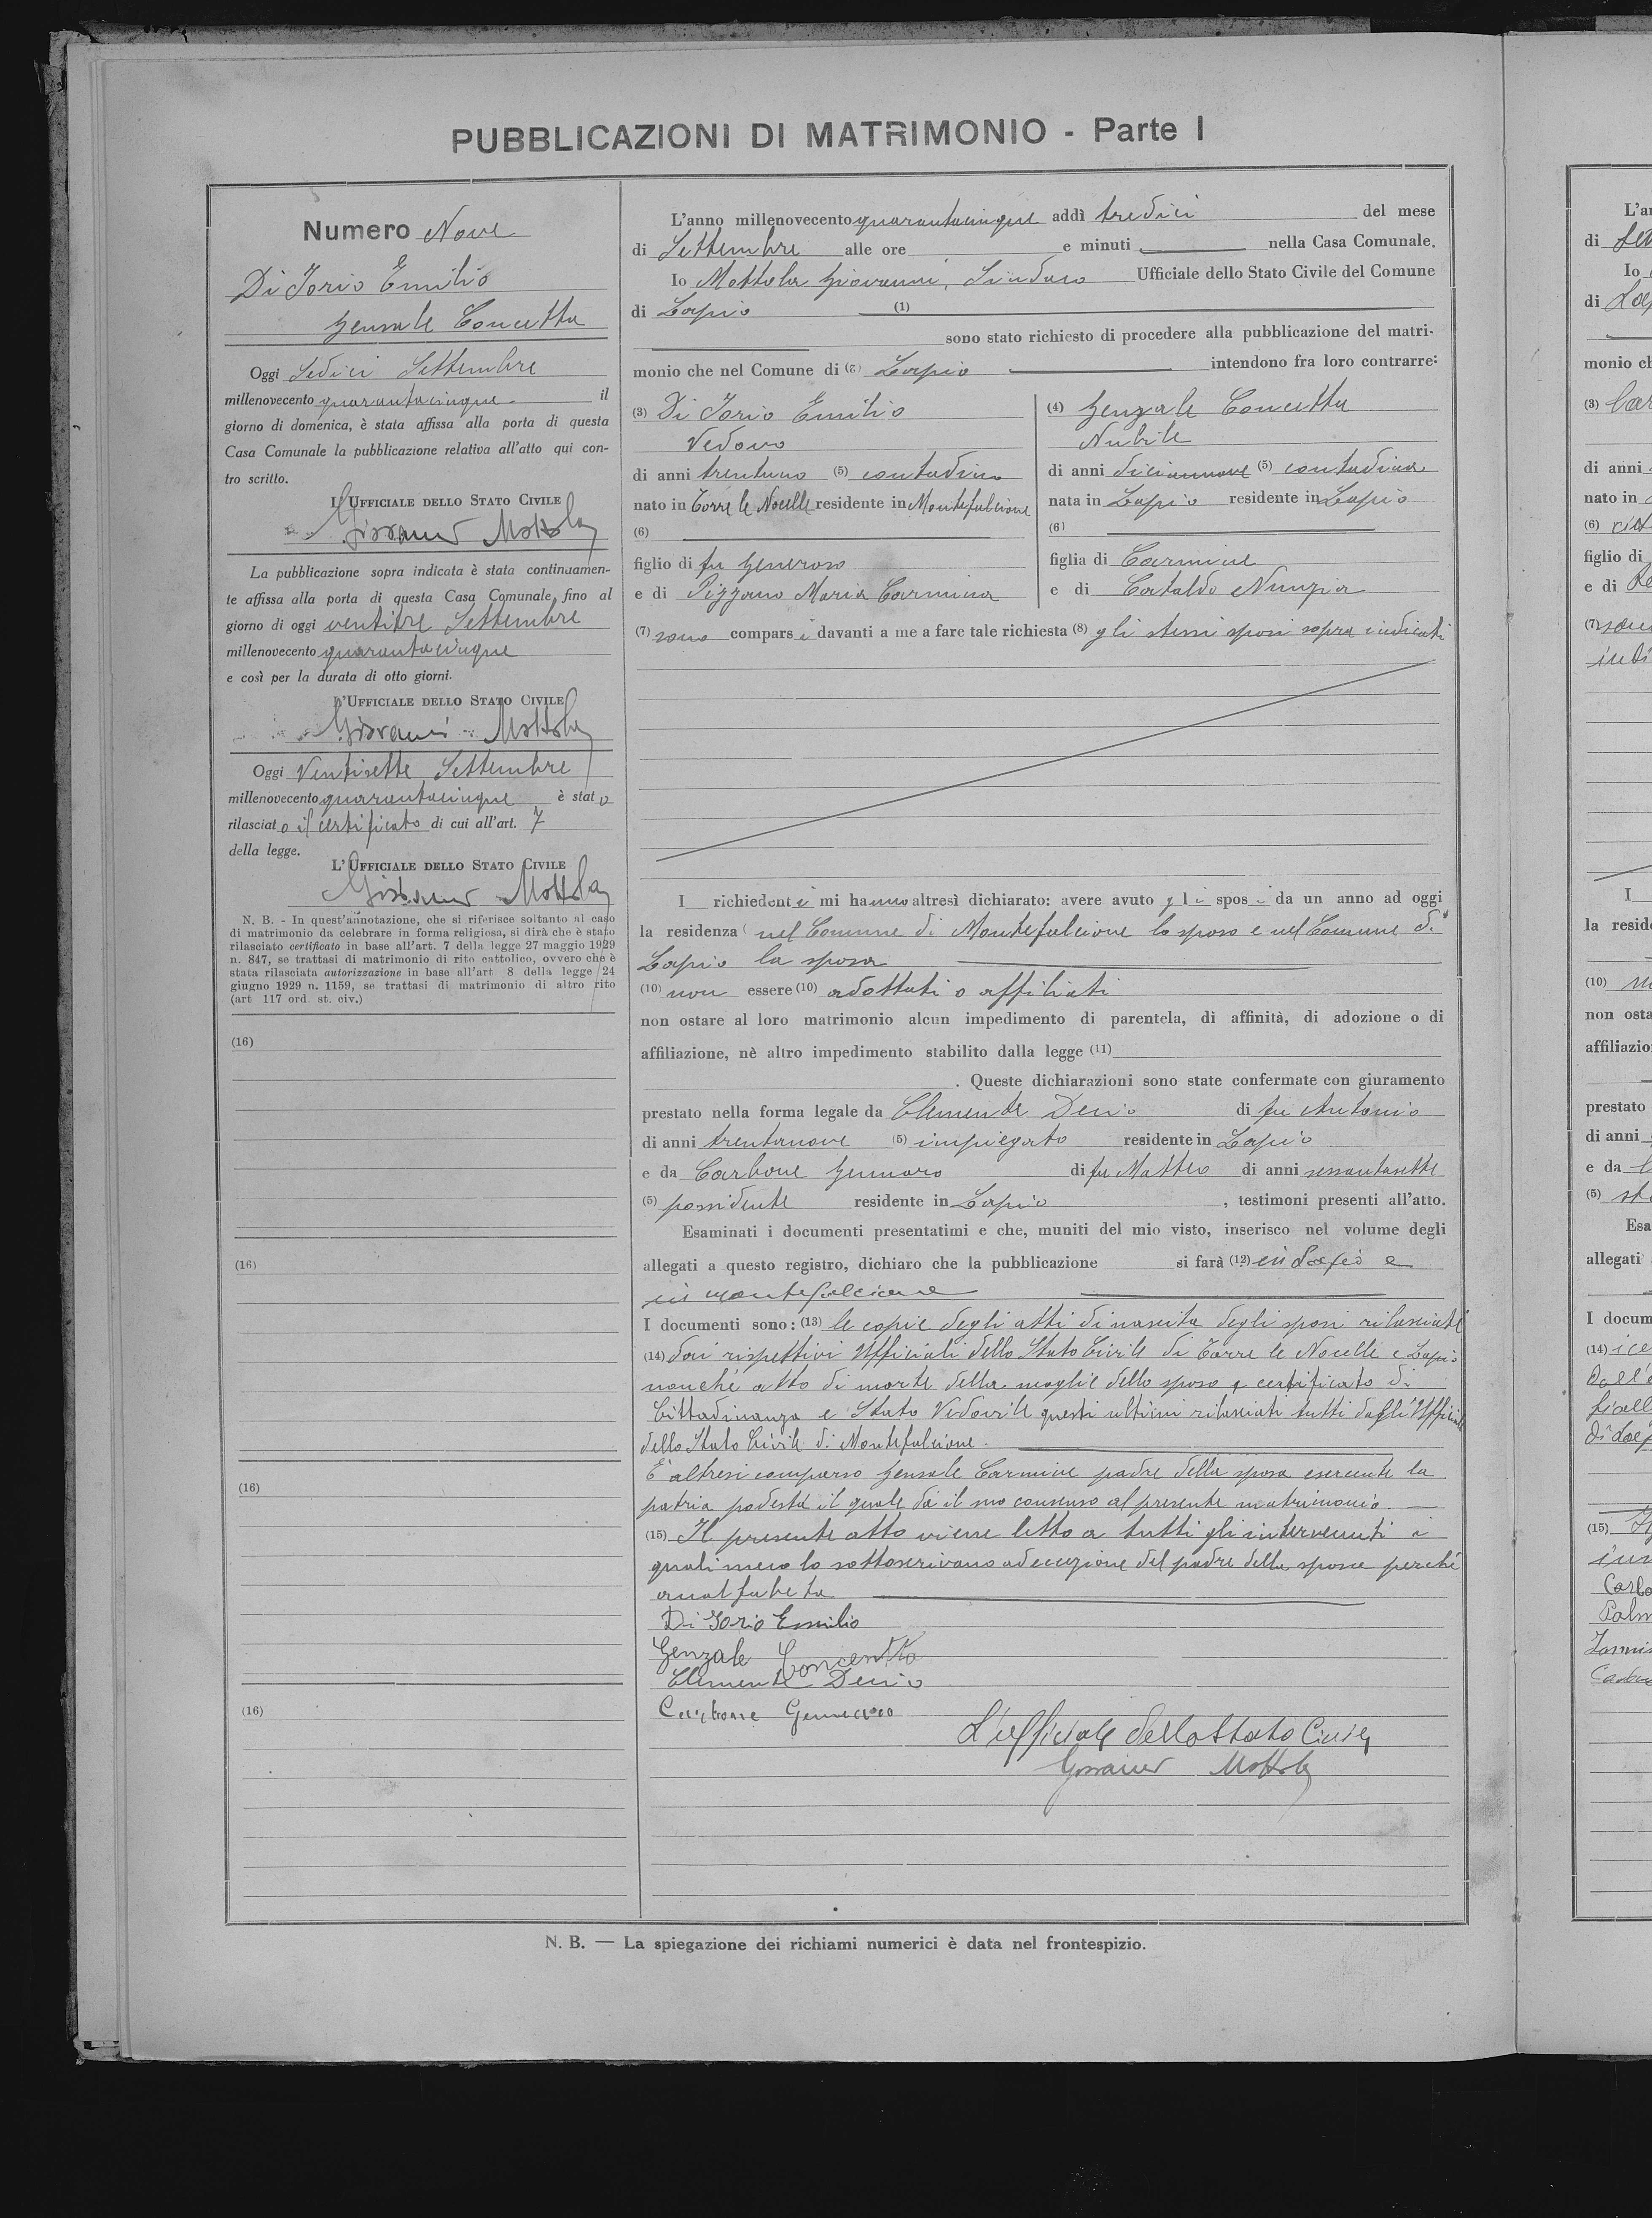 PUBBLICAZIONI DI MATRIMONIO - Parte I
Numero Nove
Di Iorio Emilio
Genzale Concetta
Oggi Sedici Settembre
millenovecento quarantacinque il
giorno di domenica, è stata affissa alla porta di questa
Casa Comunale la pubblicazione relativa all'atto qui con-
tro scritto.
L'UFFICIALE DELLO STATO CIVILE
Giovanni Mottola
La pubblicazione sopra indicata è stata continuamen-
te affissa alla porta di questa Casa Comunale fino al
giorno di oggi ventitre Settembre
millenovecento quarantacinque
e così per la durata di otto giorni.
L'UFFICIALE DELLO STATO CIVILE
Giovanni Mottola
Oggi Ventisette Settembre
millenovecento quarantacinque è stato
rilasciato il certificato di cui all'art. 7
della legge.
L'UFFICIALE DELLO STATO CIVILE
Giovanni Mottola
N. B. - In quest'annotazione, che si riferisce soltanto al caso
di matrimonio da celebrare in forma religiosa, si dirà che è stato
rilasciato certificato in base all'art. 7 della legge 27 maggio 1929
n. 847, se trattasi di matrimonio di rito cattolico, ovvero che è
stata rilasciata autorizzazione in base all'art 8 della legge 24
giugno 1929 n. 1159, se trattasi di matrimonio di altro rito
(art 117 ord. st. civ.)
(16)
(16)
(16)
(16)
L'anno millenovecento quarantacinque addì tredici del mese
di Settembre alle ore e minuti nella Casa Comunale.
Io Mottola Giovanni, Sindaco Ufficiale dello Stato Civile del Comune
di Lapio (1)
sono stato richiesto di procedere alla pubblicazione del matri-
monio che nel Comune di (2) Lapio intendono fra loro contrarre:
(3) Di Iorio Emilio
Vedovo
di anni trentuno (5) contadino
nato in Torre le Nocelle residente in Montefalcione
(6)
figlio di fu Generoso
e di Pizzano Maria Carmina
(4) Genzale Concetta
Nubile
di anni diciannove (5) contadina
nata in Lapio residente in Lapio
(6)
figlia di Carmine
e di Cataldo Nunzia
(7) sono comparsi davanti a me a fare tale richiesta (8) gli stessi sposi sopra indicati
I richiedenti mi hanno altresì dichiarato: avere avuto gli sposi da un anno ad oggi
la residenza nel Comune di Montefalcione lo sposo e nel Comune di
Lapio la sposa
(10) non essere (10) adottati o affiliati
non ostare al loro matrimonio alcun impedimento di parentela, di affinità, di adozione o di
affiliazione, nè altro impedimento stabilito dalla legge (11)
. Queste dichiarazioni sono state confermate con giuramento
prestato nella forma legale da Clemente Denio di fu Antonio
di anni trentanove (5) impiegato residente in Lapio
e da Carbone Gennaro di fu Matteo di anni sessantasette
(5) possidente residente in Lapio , testimoni presenti all'atto.
Esaminati i documenti presentatimi e che, muniti del mio visto, inserisco nel volume degli
allegati a questo registro, dichiaro che la pubblicazione si farà (12) in Lapio e
in Montefalcione
I documenti sono: (13) le copie degli atti di nascita degli sposi rilasciate
(14) dai rispettivi Ufficiali dello Stato Civile di Torre le Nocelle e Lapio
nonché atto di morte della moglie dello sposo e certificato di
Cittadinanza e Stato Vedovile questi ultimi rilasciati tutti dagli Ufficiali
dello Stato Civile di Montefalcione.
È altresì comparso Genzale Carmine padre della sposa esercente la
patria podestà il quale dà il suo consenso al presente matrimonio.
(15) Il presente atto viene letto a tutti gli intervenuti i
quali meco lo sottoscrivono ad eccezione del padre della sposa perché
analfabeta
Di Iorio Emilio
Genzale Concetta
Clemente Denio
Carbone Gennaro
L'ufficiale dello Stato Civile
Giovanni Mottola
N. B. — La spiegazione dei richiami numerici è data nel frontespizio.